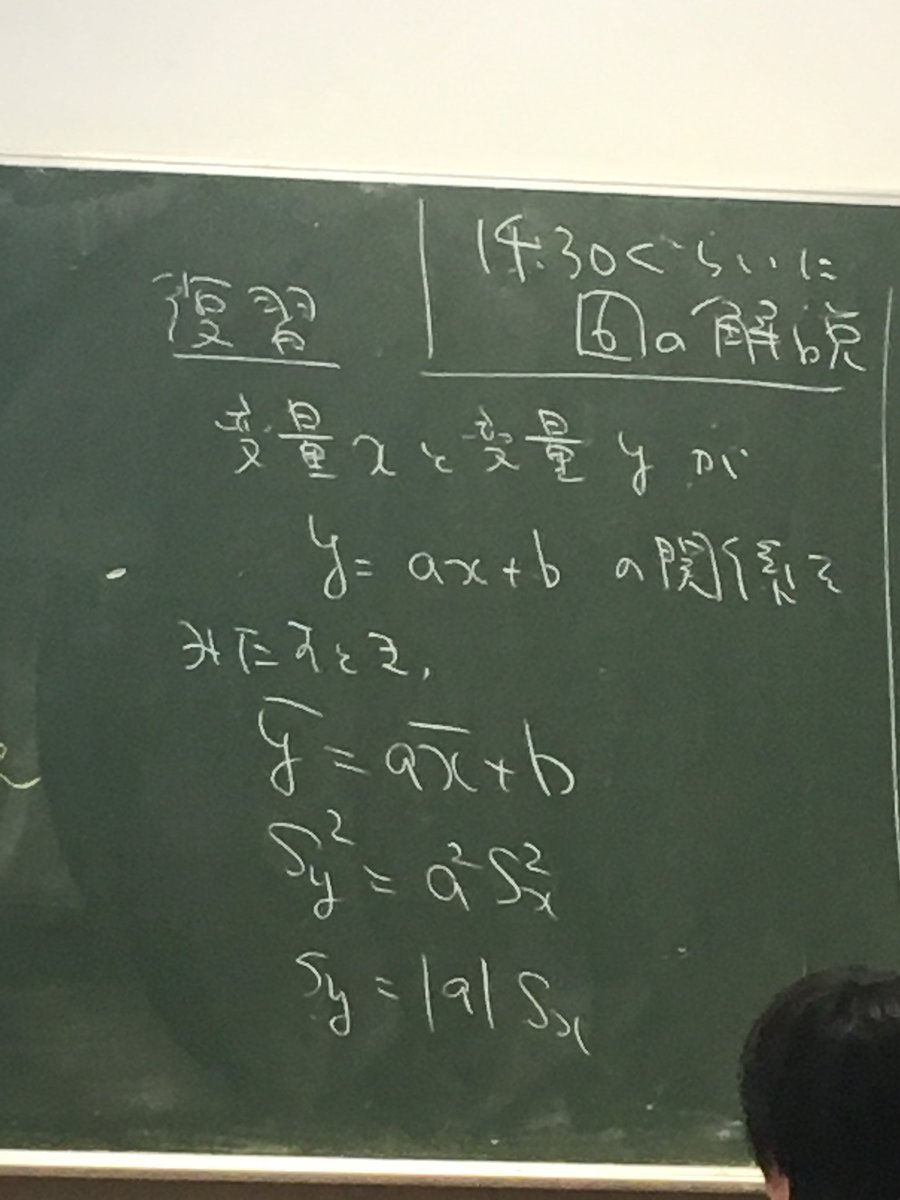 復習
14:30くらいに
6の解説
変量xと変量yが
y=ax+bの関係を
みたすとき,
y̅=ax̅+b
S_y²=a²S_x²
S_y=|a|S_x